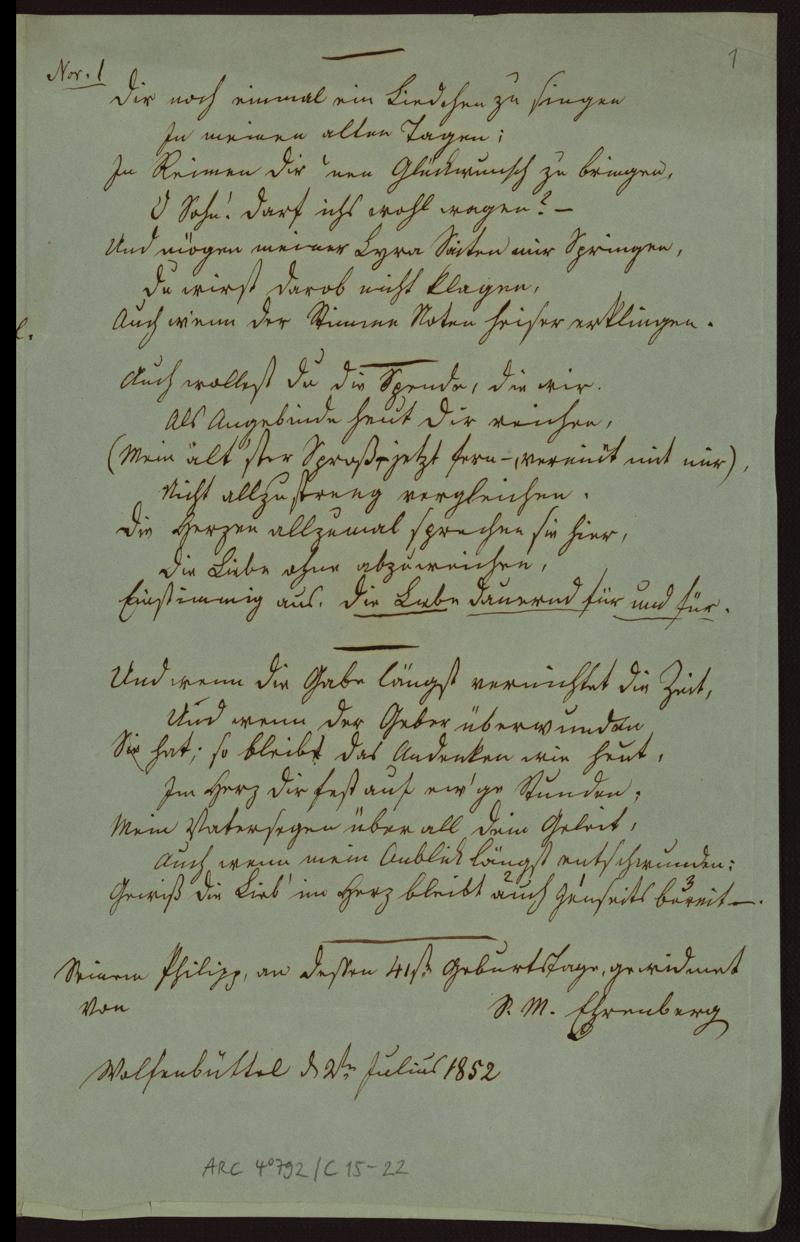 1
Nor. 1
Dir noch einmal ein Liedchen zu singen
In meinen alten Tagen;
In Reimen dir 'nen Glückwunsch zu bringen,
O Sohn! darf ichs wohl wagen? —
Und mögen meiner Lyra Saiten mir Springen,
Du wirst darob nicht klagen,
Auch wenn der Stimme Noten heiser erklingen.
Auch wollest du die Spende, die wir
Als Angebinde heut dir reichen,
(Mein ält'ster Sproß – jetzt fern –, vereint mit mir),
Nicht allzustreng vergleichen.
Die Herzen allzumal sprechen sie hier,
Die Liebe ohne abzuweichen,
Einstimmig aus, die Liebe dauernd für und für.
Und wenn die Gabe längst vernichtet die Zeit,
Und wenn der Geber überwunden
Sie hat; so bleibt das Andenken wie heut,
Im Herz dir fest auf ew'ge Stunden;
Mein Vatersegen überall dein Geleit,
Auch wenn mein Anblick längst entschwunden:
Gewiß die Lieb' im Herz bleibt auch jenseits bereit —.
2 1 3
Seinem Philipp, an dessen 41st. Geburtstage, gewidmet
von S. M. Ehrenberg
Wolfenbüttel d 2tn Julius 1852
ARC 4° 792/C 15-22